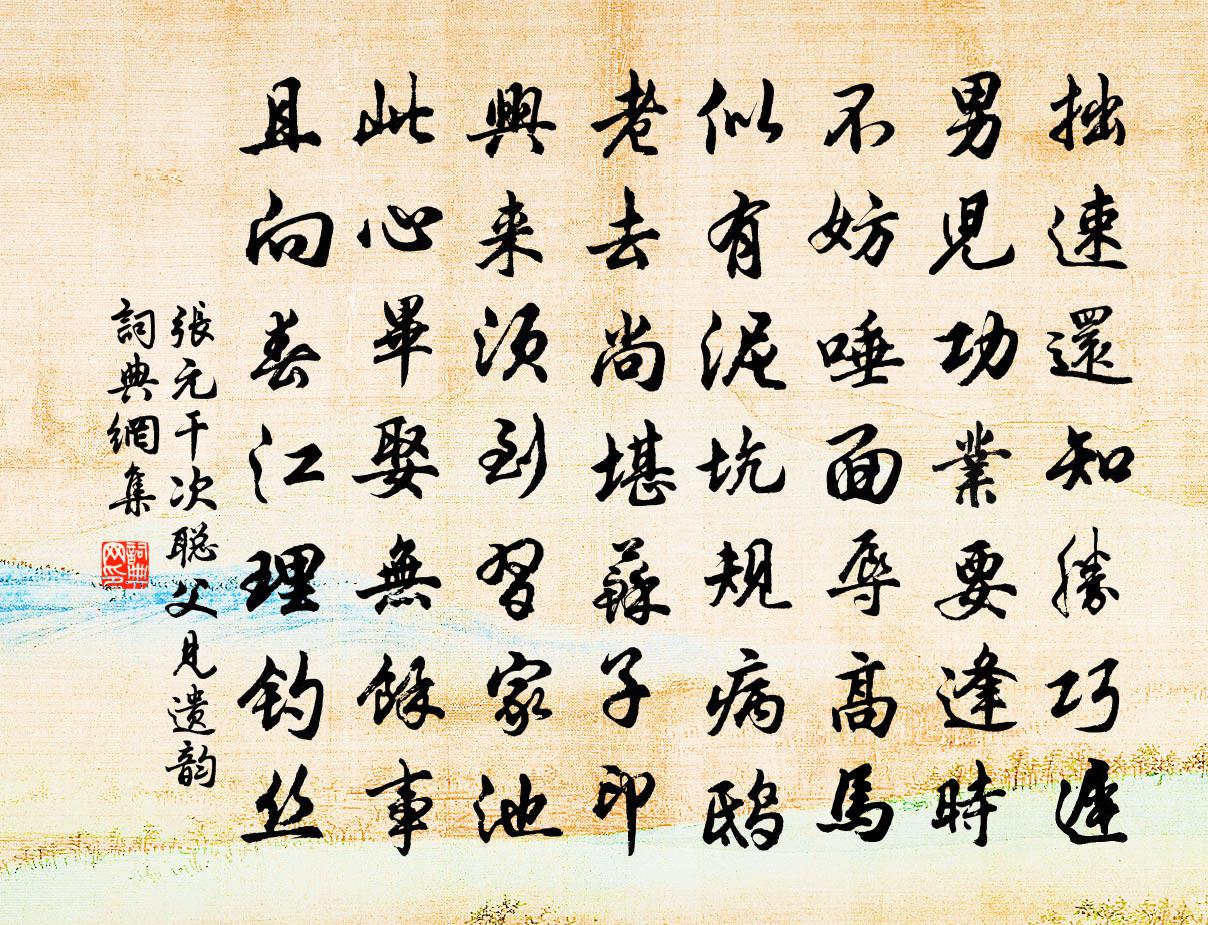 拙速還知勝巧遲
男児功業要逢時
不妨唾面辱高馬
似有泥坑規病鴟
老去尚堪蘇子印
興来須到習家池
此心畢娶無餘事
且向春江理釣丝
張元干次聡父見遗韵
詞典網集
詞典网印